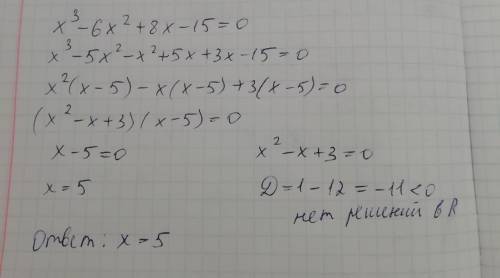 x³-6x²+8x-15=0
x³-5x²-x²+5x+3x-15=0
x²(x-5)-x(x-5)+3(x-5)=0
(x²-x+3)(x-5)=0
x-5=0 x²-x+3=0
x=5 D=1-12=-11<0
нет решений в R
Ответ: x=5